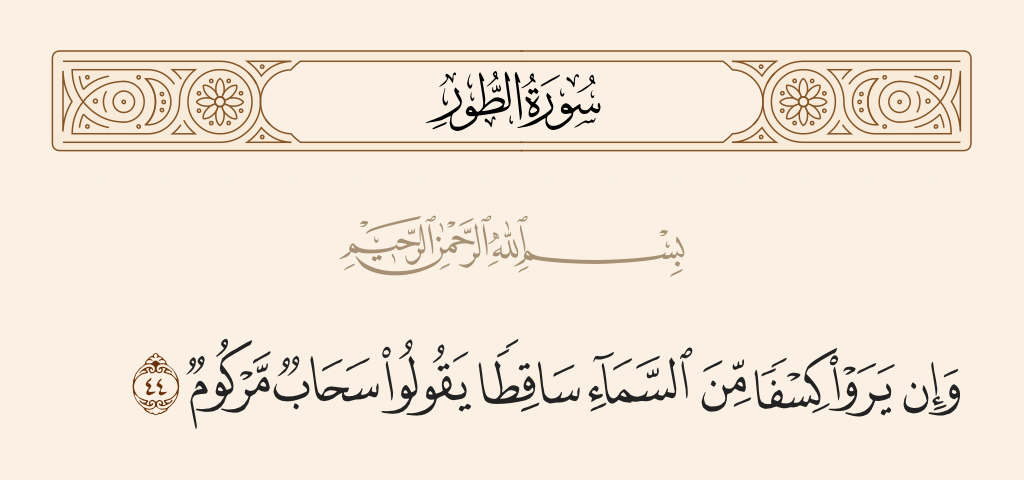 سُورَةُ الطُّورِ
بِسْمِ ٱللَّهِ ٱلرَّحْمَٰنِ ٱلرَّحِيمِ
وَإِن يَرَوْا۟ كِسْفًا مِّنَ ٱلسَّمَآءِ سَاقِطًا يَقُولُوا۟ سَحَابٌ مَّرْكُومٌ ٤٤